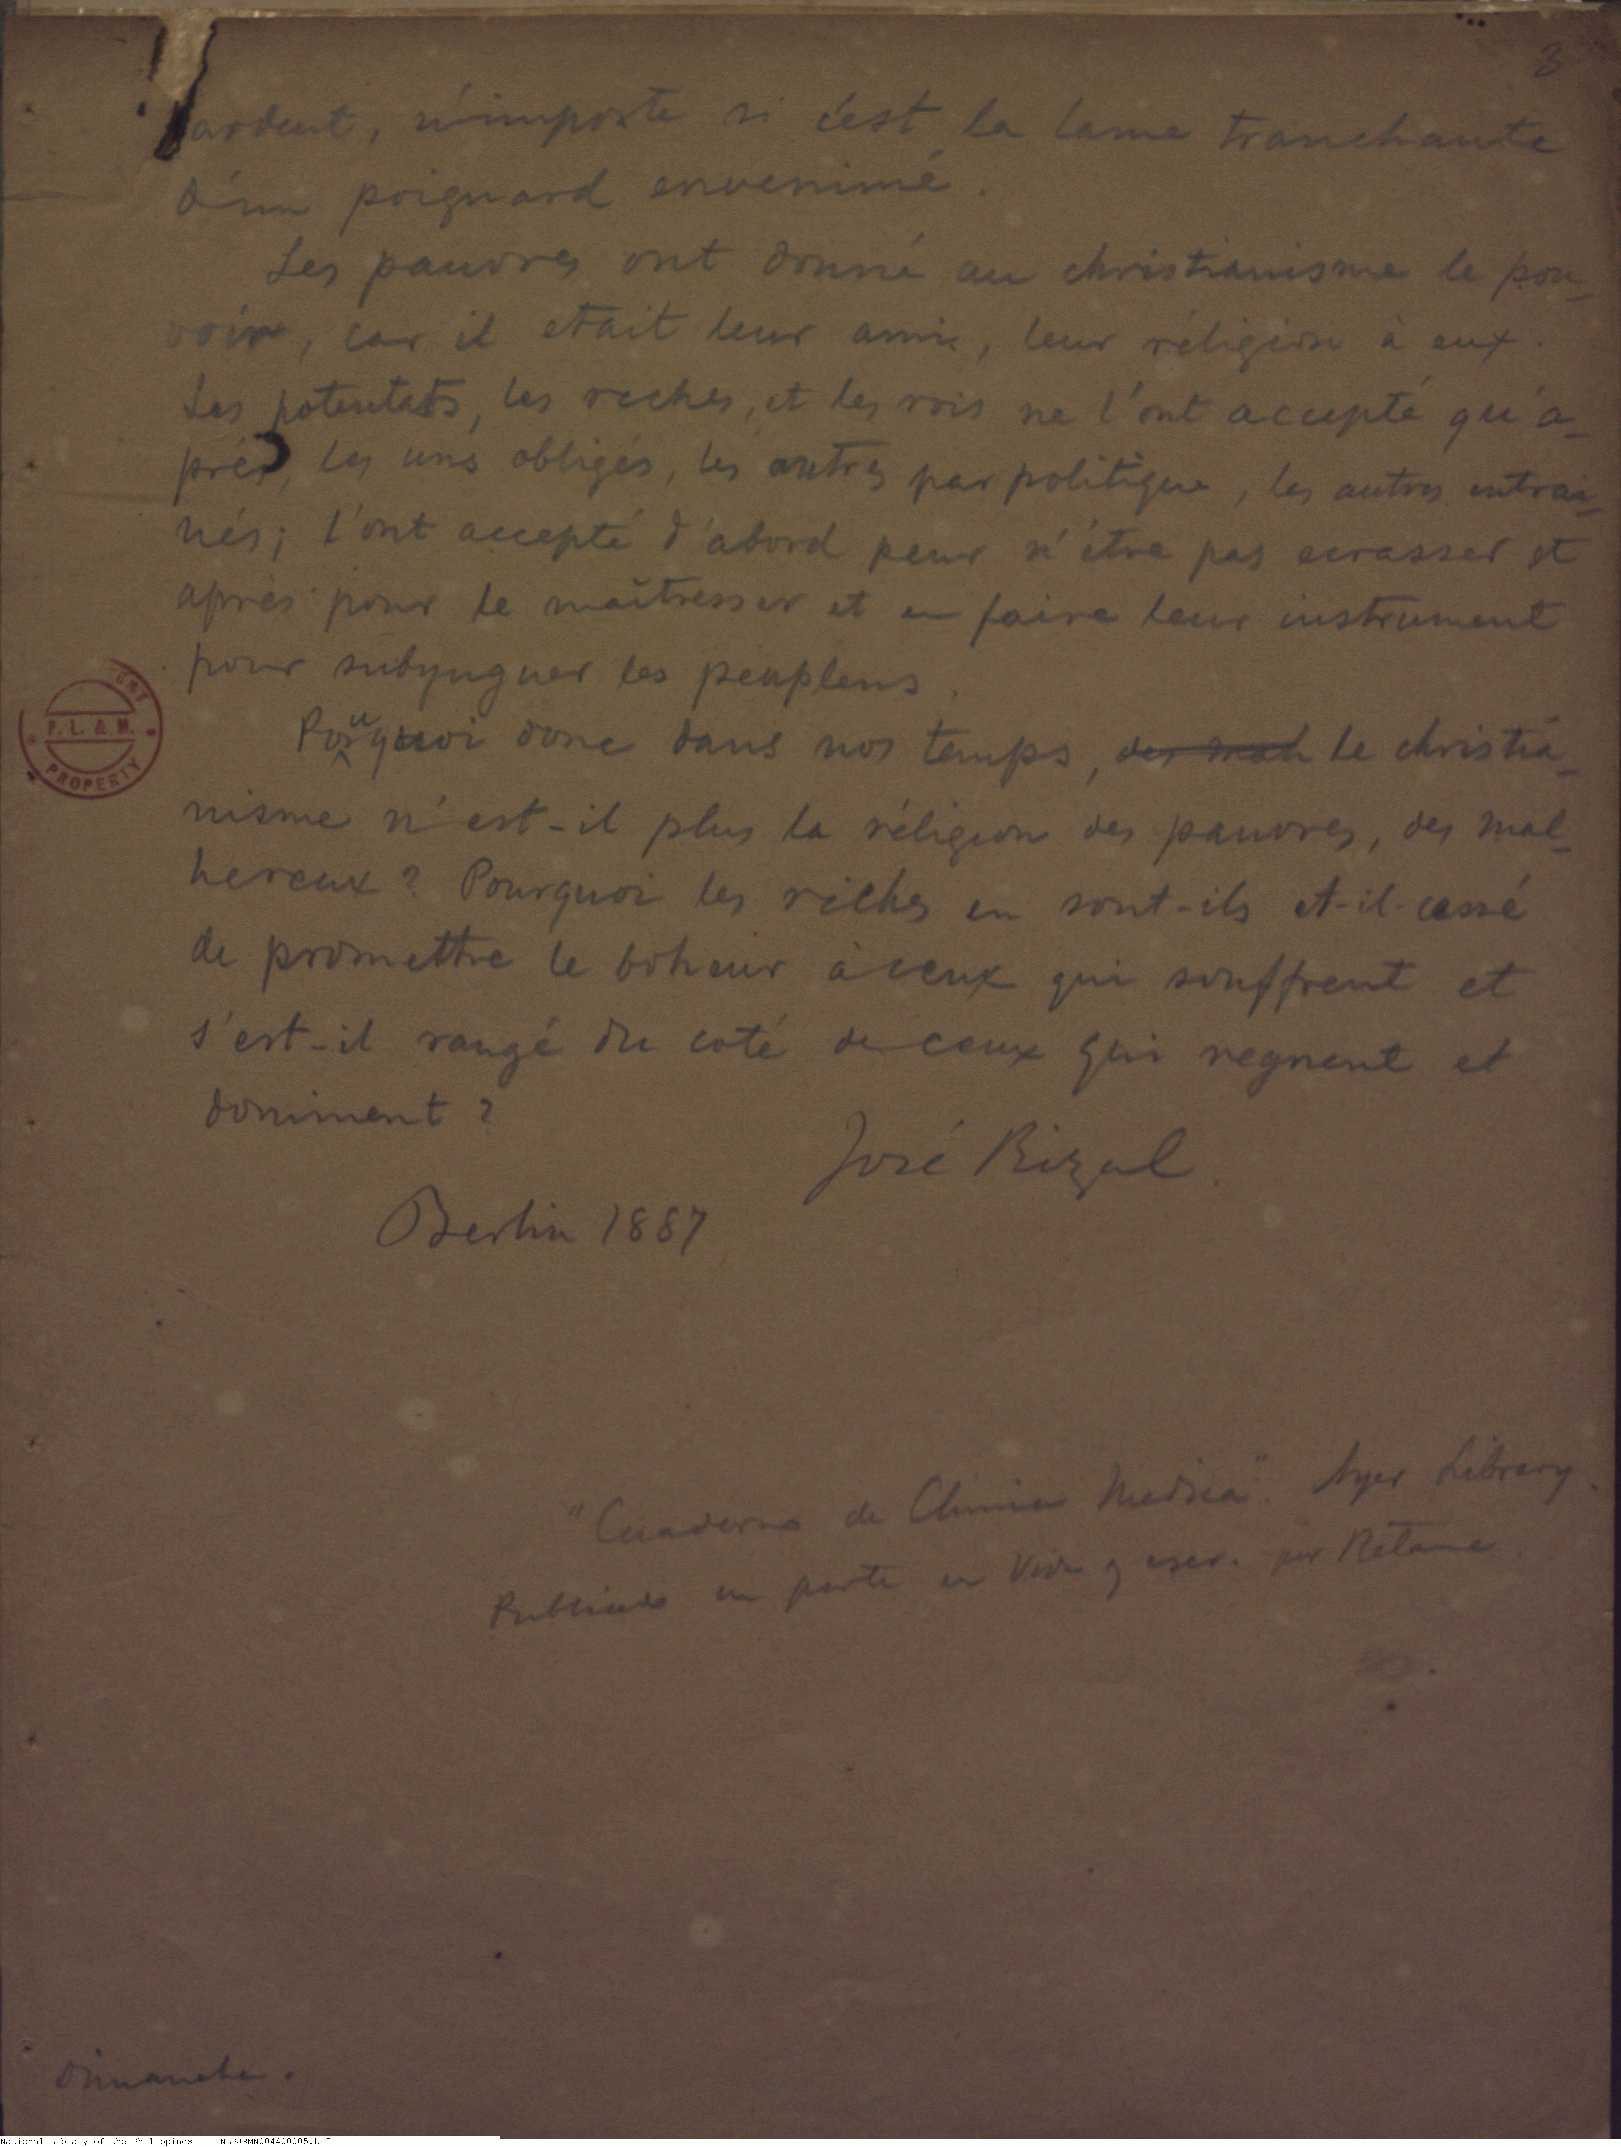 3
ardent, n'importe si c'est la lame tranchante
d'un poignard envenimé.
Les pauvres ont donné au christianisme le pou-
voir, car il etait leur ami, leur réligion à eux.
Les potentats, les riches, et les rois ne l'ont accepté qu'a-
prés, les uns obligés, les autres par politique, les autres entrai-
nés; l'ont accepté d'abord peur n'être pas ecrasser et
aprés pour le maîtresser et en faire leur instrument
pour subyuguer les peuplens.
Pourquoi donc dans nos temps, le christia-
nisme n'est-il plus la réligion des pauvres, des mal-
hereux? Pourquoi les riches en sont-ils et-il-cessé
de promettre le boheur à ceux qui souffrent et
s'est-il rangé du coté de ceux qui regnent et
dominent?
José Rizal
Berlin 1887
"Cuaderno de Clinica Medica". Ayer Library.
Publicado en parte en Vida y escr. por Retana.
Dimanche.
P. L. & M.
PROPERTY
National Library of the Philippines